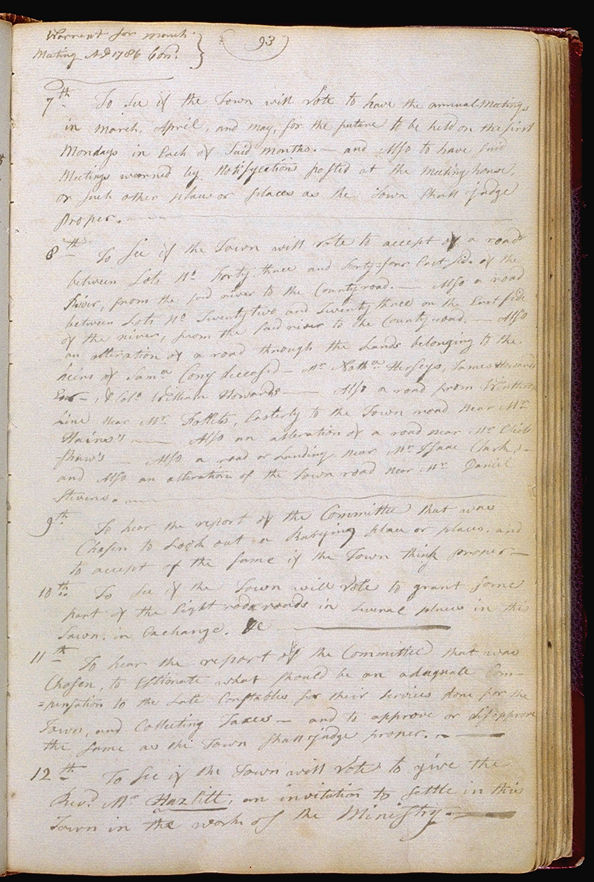 Warrent for march
Meeting AD 1786 Con.
93
7th. To See if the Town will Vote to have the annual Meetings
in march, April, and may, for the future to be held on the first
Mondays in Each of Said months. — and Also to have Said
Meetings warned by Notifycations posted at the meeting house,
or such other place or places as the Town Shall judge
proper.
8th To See if the Town will vote to accept of a road
between Lots No. forty three and forty four East Side of the
River, from the said river to the County road. — Also a road
between Lots No. Twenty two and twenty three on the East side
of the river, from the Said river to the County road. — Also
an alteration of a road through the Lands belonging to the
heirs of Saml. Cony deceased — Mr. Nathl. Herseys, James Howard
Esqr. & Colo. William Howards — Also a road from
line near Mr. Follets, Easterly to the Town road near Mr.
Haines's — Also an alteration of a road near Mr.
Shaw's — Also a road or Landing near Mr. Isaac Clark, —
and Also an alteration of the Town road near Mr. Daniel
Stevens.
9th. To hear the report of the Committee that was
Chosen to Look out a Burying place or places, and
to accept of the same if the Town think proper —
10th. To See if the Town will Vote to grant some
part of the Eight rod roads in several places in the
Town, in Exchange. &c
11th To hear the report of the Committee that was
Chosen, to Estimate what should be an adequate Com-
=pensation to the Late Constables for their Services done for the
Town, and Collecting Taxes — and to approve or disapprove
the same as the Town shall judge proper. —
12th To See if the Town will Vote to give the
Revd. Mr. Hazlitt, an invitation to Settle in this
Town in the work of the Ministry. —